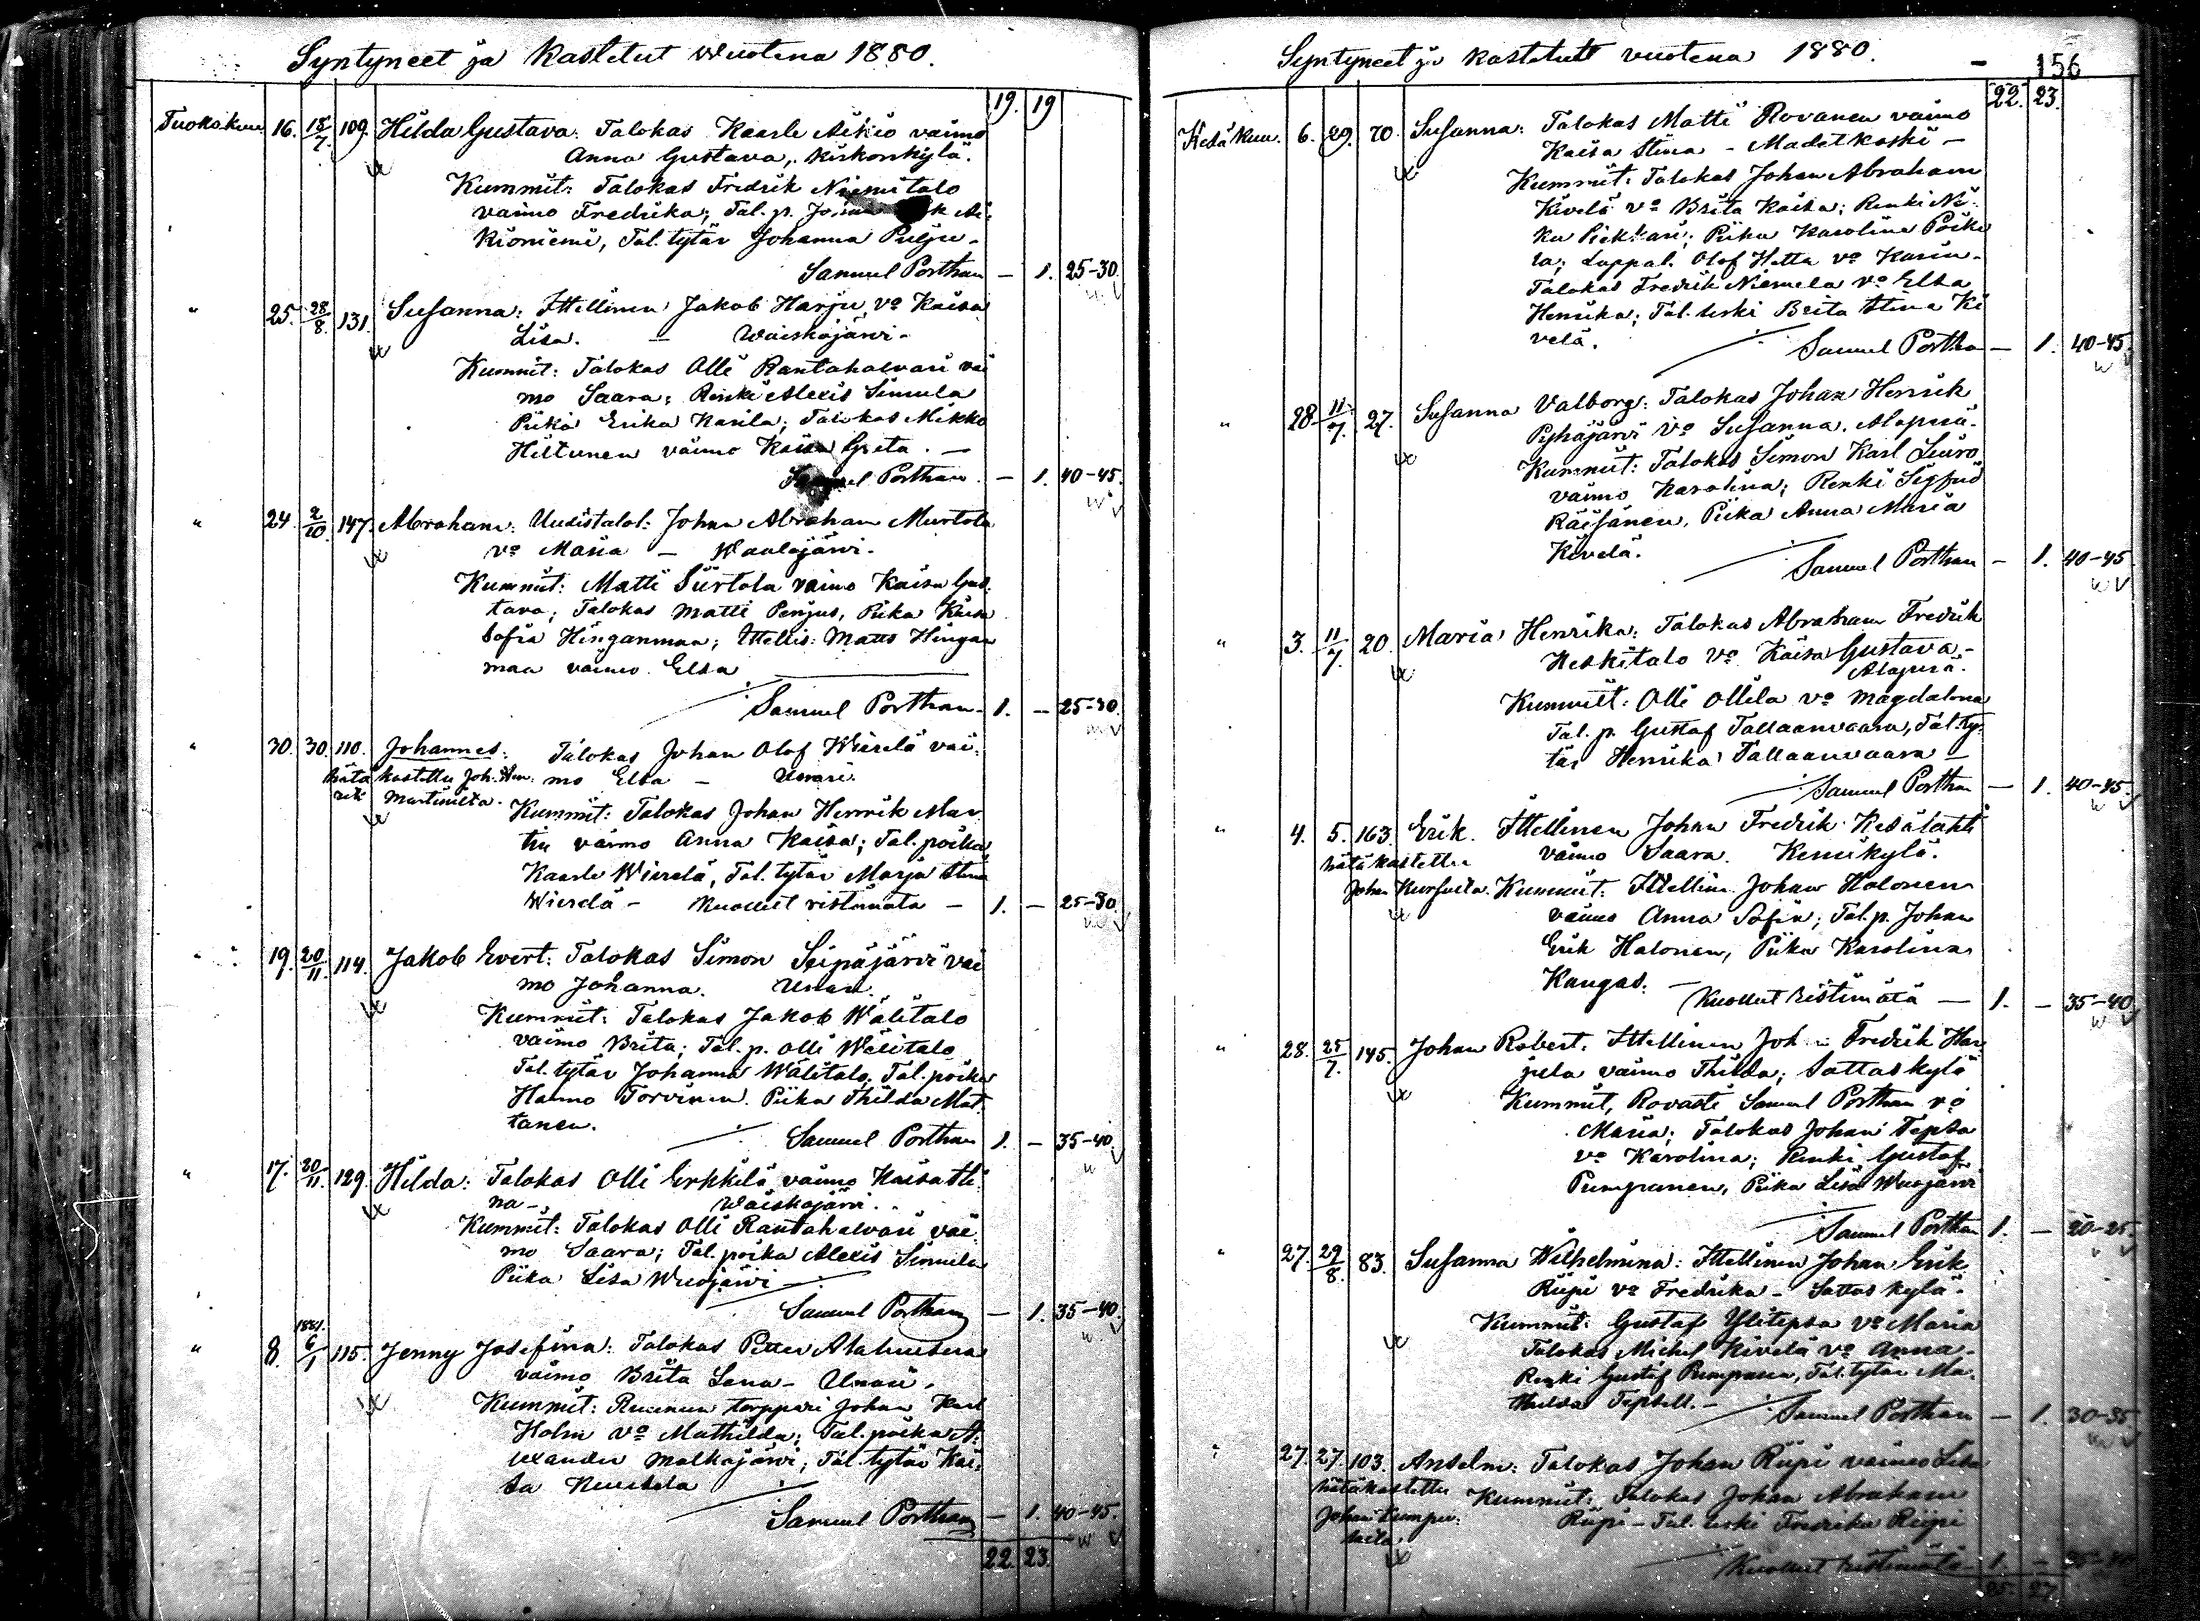 Syntyneet ja Kastetut Wuotena 1880.
19. 19
Tuokokuu 16. 18/7 109. Hilda Gustava: Talokas Kaarle Aikio vaimo
Anna Gustava, Kirkonkylä.
Kummit: Talokas Fredrik Niemitalo
vaimo Fredrika; Tal. p. Ai-
kioniemi, Tal. tytär Johanna Pulju-
Samuel Porthan — 1. 25-30.
" 25. 28/8 131. Susanna: Ittellinen Jakob Harju, vo Kaisa
Lisa. — Waiskojärvi-
Kummit: Talokas Olli Rantahalvari vai
mo Saara; Renki Alexis Simula
Piika Erika Karila; Talokas Mikko
Hiltunen vaimo Kaisa Greta. —
Samuel Porthan — 1. 40-45.
" 24. 2/10 147. Abraham: Uudistalol: Johan Abraham Murtola
vo Maria — Waalajärvi.
Kummit: Matti Siirtola vaimo Kaisa Gus-
tava; Talokas Matti Penjus, Piika Kaisa
Sofia Hinganmaa; Ittellis: Matts Hingan
maa vaimo Elsa
Samuel Porthan 1. — 25-30.
" 30. 30. 110. Johannes: Talokas Johan Olof Wierelä vai-
hätä kastettu Joh. Hen- mo Elsa — Unari.
rik Martinilta. Kummit: Talokas Johan Henrik Mar
tin vaimo Anna Kaisa; Tal. poika
Kaarle Wierelä, Tal. tytär Marja Stina
Wierelä - Kuollut ristimätä — 1. — 25-30.
" 19. 20/11 114. Jakob Evert: Talokas Simon Seipäjärvi vai
mo Johanna. Unari.
Kummit: Talokas Jakob Wälitalo
vaimo Brita; Tal. p. Olli Wälitalo
Tal. tytär Johanna Wälitalo, Tal. poika
Hanno Torvinen. Piika Thilda Mat
tanen.
Samuel Porthan 1. — 35-40.
" 17. 20/11 129. Hilda: Talokas Olli Erkkilä vaimo Kaisa Sti-
na - Waiskojärvi.
Kummit: Talokas Olli Rantahalvari vai
mo Saara; Tal. poika Alexis Simula
Piika Lisa Wuojärvi —
Samuel Porthan — 1. 35-40.
1881.
" 8. 6/1 115. Jenny Josefina: Talokas Petter Alahuhta
vaimo Brita Lena - Unari.
Kummit: Ruunun torppari Johan Karl
Holm vo Mathilda; Tal. poika A-
lexander Molkojärvi; Tal. tytär Kai-
sa
Samuel Porthan — 1. 40-45.
22. 23.
Syntyneet ja kastetut vuotena 1880. - 156
22. 23.
Kesäkuu. 6. 29. 70. Susanna: Talokas Matti Rovanen vaimo
Kaisa Stina - Madetkoski —
Kummit: Talokas Johan Abraham
Kivelä vo Brita Kaisa; Renki Ni-
ku Piekkari; Piika Karolina Poike
la; Lappal. Olof Hetta vo Karin.
Talokas Fredrik Niemela vo Elsa
Henrika; Tal. leski Brita Stina Ki
velä.
Samuel Portha — 1. 40-45.
" 28. 11/7 27. Susanna Valborg: Talokas Johan Henrik
Pyhäjärvi vo Susanna. Alaperä.
Kummit: Talokas Simon Karl Siiro
vaimo Karolina; Renki Sigfrid
Räisänen, Piika Anna Maria
Kivelä.
Samuel Porthan — 1. 40-45
" 3. 11/7 20. Maria Henrika: Talokas Abraham Fredrik
Keskitalo vo Kaisa Gustava -
Alaperä.
Kummit: Olli Ollila vo Magdalena
Tal. p. Gustaf Tallaanvaara, Tal. ty-
tär Henrika Tallaanvaara —
Samuel Porthan — 1. 40-45.
" 4. 5. 163. Erik. Ittellinen Johan Fredrik Kesälahti
hätäkastettu vaimo Saara. Kemikylä.
Johan Kummit: Ittellin. Johan Halonen
vaimo Anna Sofia; Tal. p. Johan
Erik Halonen, Piika Karolina
Kangas. —
Kuollut ristimätä — 1. — 35-40
" 28. 25/7 145. Johan Robert. Ittellinen Joh Fredrik Har
jula vaimo Thilda; Sattaskylä
Kummit, Rovasti Samuel Porthan vo
Maria; Talokas Johan Tepsa
vo Karolina; Renki Gustaf
Pumpanen, Piika Lisa Wuojärvi
Samuel Porthan 1. — 20-25.
" 27. 29/8 83. Susanna Wilhelmina: Ittellinen Johan Erik
Riipi vo Fredrika - Sattaskylä.
Kummit: Gustaf Ylitepsa vo Maria
Talokas Michel Kivelä vo Anna -
Renki Gustaf Pumpanen, Tal. tytär Ma-
thilda Tepsell. —
Samuel Porthan — 1. 30-35
27. 27. 103. Anselm: Talokas Johan Riipi vaimo Lisa
hätäkastettu Kummit: Talokas Johan Abraham
Johan Riipi - Tal. leski Fredrika Riipi
Kuollut ristimätä — 1. —
25. 27.